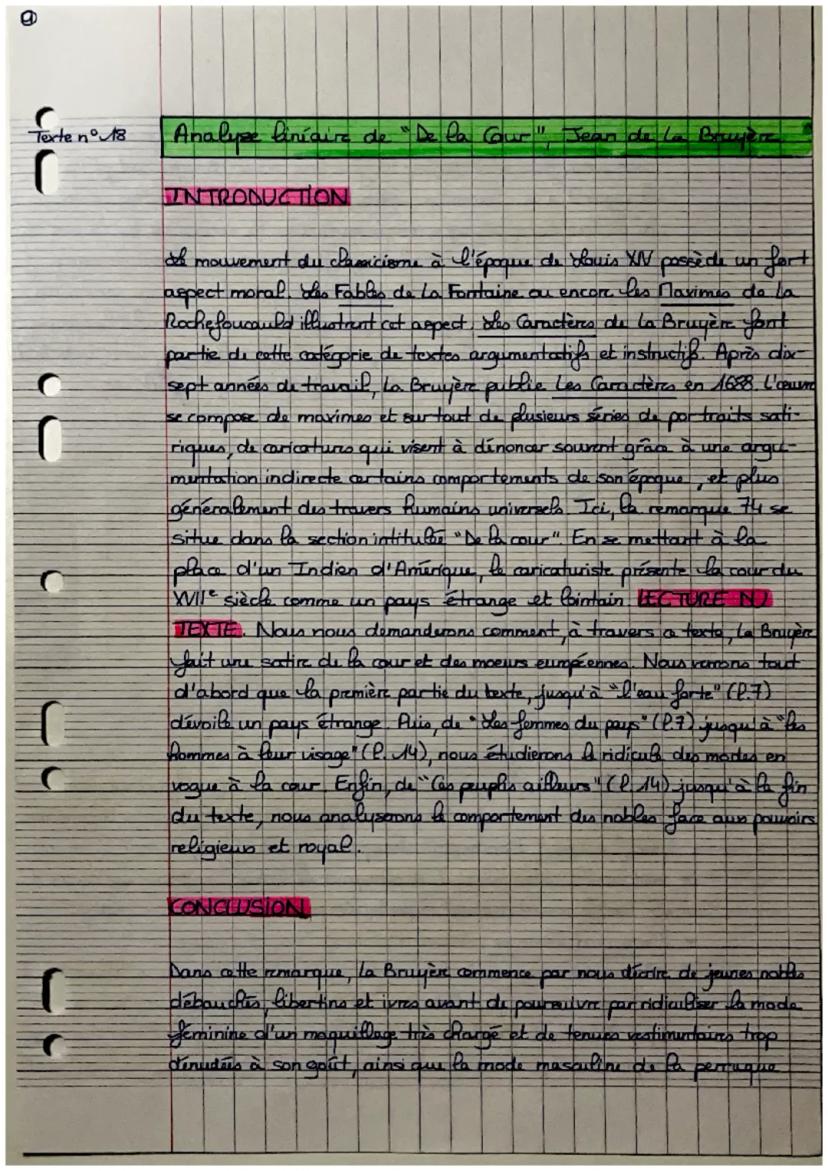 Texte n° 18
Analyse linéaire de "De la Cour", Jean de La Bruyère
INTRODUCTION
Le mouvement du classicisme à l'époque de Louis XIV possède un fort
aspect moral. Les Fables de La Fontaine ou encore les Maximes de La
Rochefoucauld illustrent cet aspect. Les Caractères de La Bruyère font
partie de cette catégorie de textes argumentatifs et instructifs. Après dix-
sept années de travail, La Bruyère publie Les Caractères en 1688. L'œuvre
se compose de maximes et surtout de plusieurs séries de portraits sati-
riques, de caricatures qui visent à dénoncer souvent grâce à une argu-
mentation indirecte certains comportements de son époque, et plus
généralement des travers humains universels. Ici, la remarque 74 se
situe dans la section intitulée "De la cour". En se mettant à la
place d'un Indien d'Amérique, le caricaturiste présente la cour du
XVIIe siècle comme un pays étrange et lointain. LECTURE
TEXTE. Nous nous demanderons comment, à travers ce texte, La Bruyère
fait une satire de la cour et des moeurs européennes. Nous verrons tout
d'abord que la première partie du texte, jusqu'à "l'eau forte" (l.7)
dévoile un pays étrange. Puis, de "Les femmes du pays" (l.7) jusqu'à "les
hommes à leur visage" (l. 14), nous étudierons le ridicule des modes en
vogue à la cour. Enfin, de "Ces peuples ailleurs" (l. 14) jusqu'à la fin
du texte, nous analyserons le comportement des nobles face aux pouvoirs
religieux et royal.
CONCLUSION
Dans cette remarque, La Bruyère commence par nous décrire de jeunes nobles
débauchés, libertins et ivres avant de poursuivre par ridiculiser la mode
féminine d'un maquillage très chargé et de tenues vestimentaires trop
dénudées à son goût, ainsi que la mode masculine de la perruque